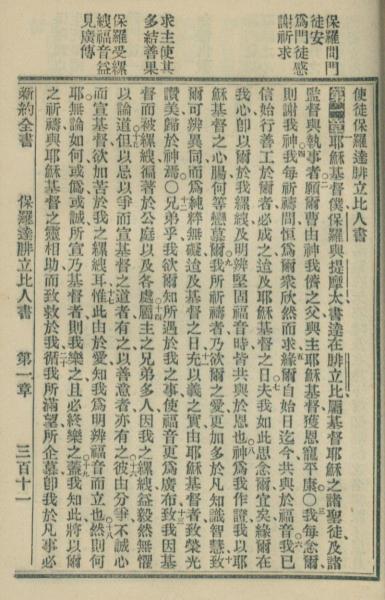 保羅問門
徒安
爲門徒感
謝祈求
求主使其
多結善果
保羅受縲
絏福音益
見廣傳
使徒保羅達腓立比人書
第一章耶穌基督僕保羅與提摩太書達在腓立比屬基督耶穌之諸聖徒及諸
監督與執事者願爾曹由神我儕之父與主耶穌基督獲恩寵平康〇我每念爾
則謝我神我每祈禱間恒爲爾衆欣然而求緣爾自始日迄今共與於福音我已
信始行善工於爾者必成之迨及耶穌基督之日夫我如此思念爾宜矣緣爾在
我心卽以爾於我縲絏及明辨堅固福音時皆共與於恩也神爲我作證我以耶
穌基督之心腸何等戀慕爾我所祈禱者乃欲爾之愛更加多於凡知識智慧致
爾可辨異同而爲純粹無礙迨及基督之日充以義之實由耶穌基督者致榮光
讚美歸於神焉〇兄弟乎我欲爾知所遇於我之事使福音更爲廣布致我因基
督而被縲絏徧著於公庭以及各處屬主之兄弟多人因我之縲絏益毅然無懼
以論道但以忌以爭而宣基督之道者有之以善意者亦有之彼由分爭不誠心
而宣基督欲加苦於我之縲絏耳惟此由於愛知我爲明辨福音而立也然則何
耶無論如何或僞或誠所宣乃基督者則我樂之且必終樂之蓋我知此將以爾
之祈禱與耶穌基督之靈相助而致救於我循我所滿望所企慕卽我於凡事必
新約全書
保羅達腓立比人書
第一章
三百十一